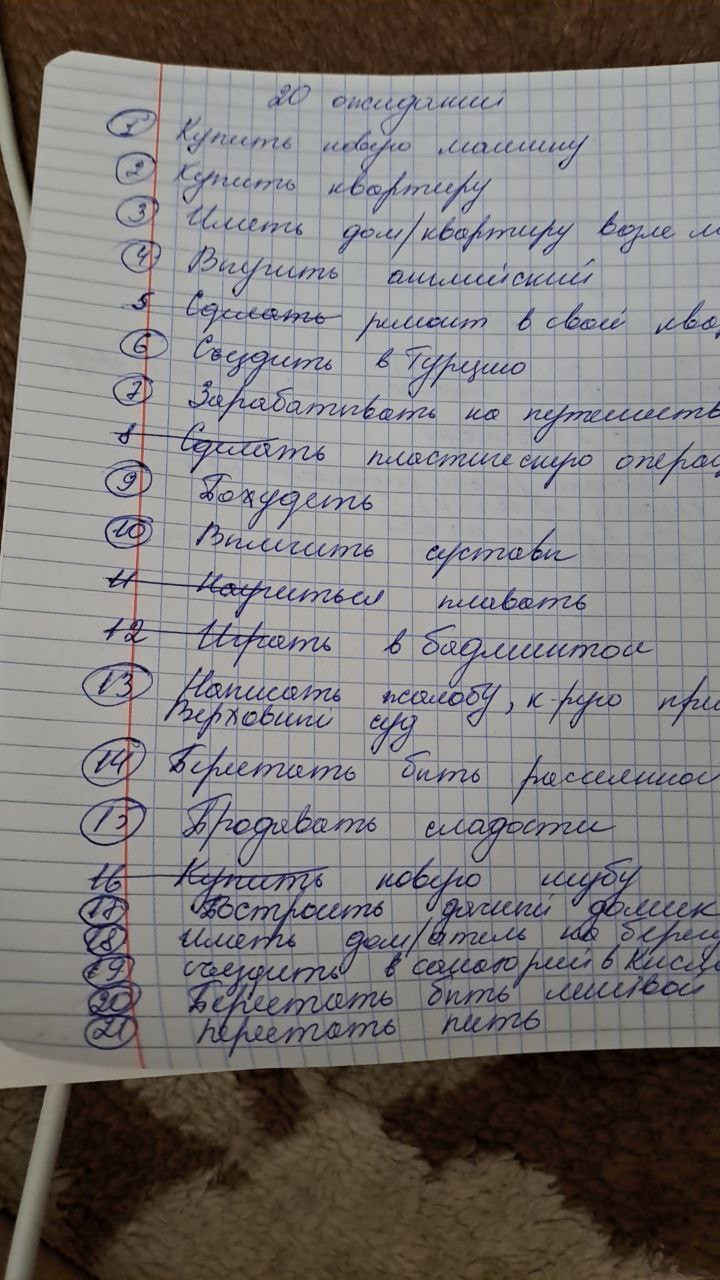 20 ожиданий
1 Купить новую машину
2 Купить квартиру
3 Иметь дом/квартиру возле м
4 Выучить английский
5 Сделать ремонт в своей ква
6 Съездить в Турцию
7 Зарабатывать на путешеств
8 Сделать пластическую операц
9 Похудеть
10 Вылечить суставы
11 Научиться плавать
12 Играть в бадминтон
13 Написать жалобу, к-рую при
Верховный суд
14 Перестать быть рассеянной
15 Продавать сладости
16 Купить новую шубу
17 Построить дачный домик
18 Иметь дом/отель на берег
19 Съездить в санаторий в Кисло
20 Перестать быть ленивой
21 перестать пить